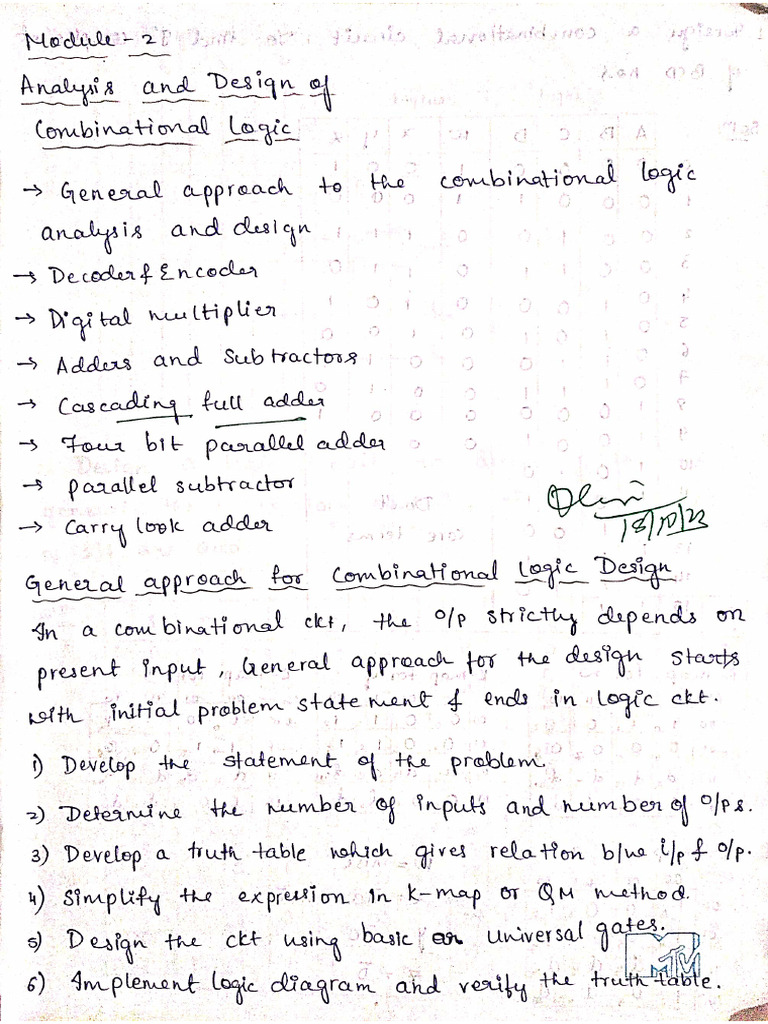 Module - 2
Analysis and Design of
Combinational Logic
→ General approach to the combinational logic
analysis and design
→ Decoder & Encoder
→ Digital multiplier
→ Adders and Subtractors
→ Cascading full adder
→ Four bit parallel adder
→ parallel subtractor
→ Carry look adder
18/10/23
General approach for Combinational Logic Design
In a combinational ckt, the o/p strictly depends on
present input, General approach for the design starts
with initial problem statement & ends in logic ckt.
1) Develop the statement of the problem.
2) Determine the number of inputs and number of o/ps.
3) Develop a truth table which gives relation b/we i/p & o/p.
4) Simplify the expression in k-map or QM method.
5) Design the ckt using basic or universal gates.
6) Implement logic diagram and verify the truth table.
MTV